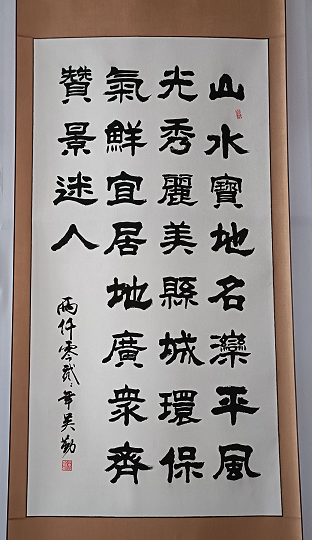 山水寶地名灤平風
光秀麗美縣城環保
氣鮮宜居地廣衆齊
贊景迷人
兩仟零貳年吴勤